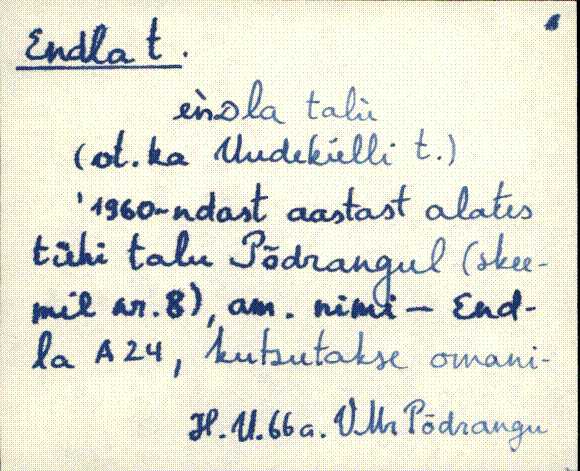 Endla t.
eǹdla talu
(ot. ka Uudeküelli t.)
'1960-ndast aastast alates
tühi talu Põdrangul (skee-
mil nr. 8), am. nimi — End-
la A 24, kutsutakse omani-
H. U. 66 a. VMr Põdrangu